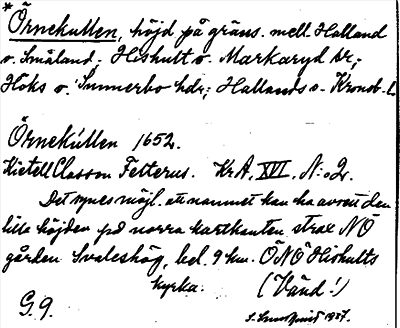 * Örnekullen, höjd på gräns. mell. Halland
o. Småland; Hishult o. Markaryd sr;
Höks o. Sunnerbo hdr; Hallands o. Kronob. L.
Örnekúllen 1652.
Kietell Classon Fetterus. KrA, XVI, N:o 2.
Det synes möjl. att namnet kan ha avsett den
lilla höjden på norra kartkanten strax NÖ
gården Svaleshög, bel. 9 km. ÖNÖ Hishults
kyrka. (Vänd!)
G. 9. 1937.